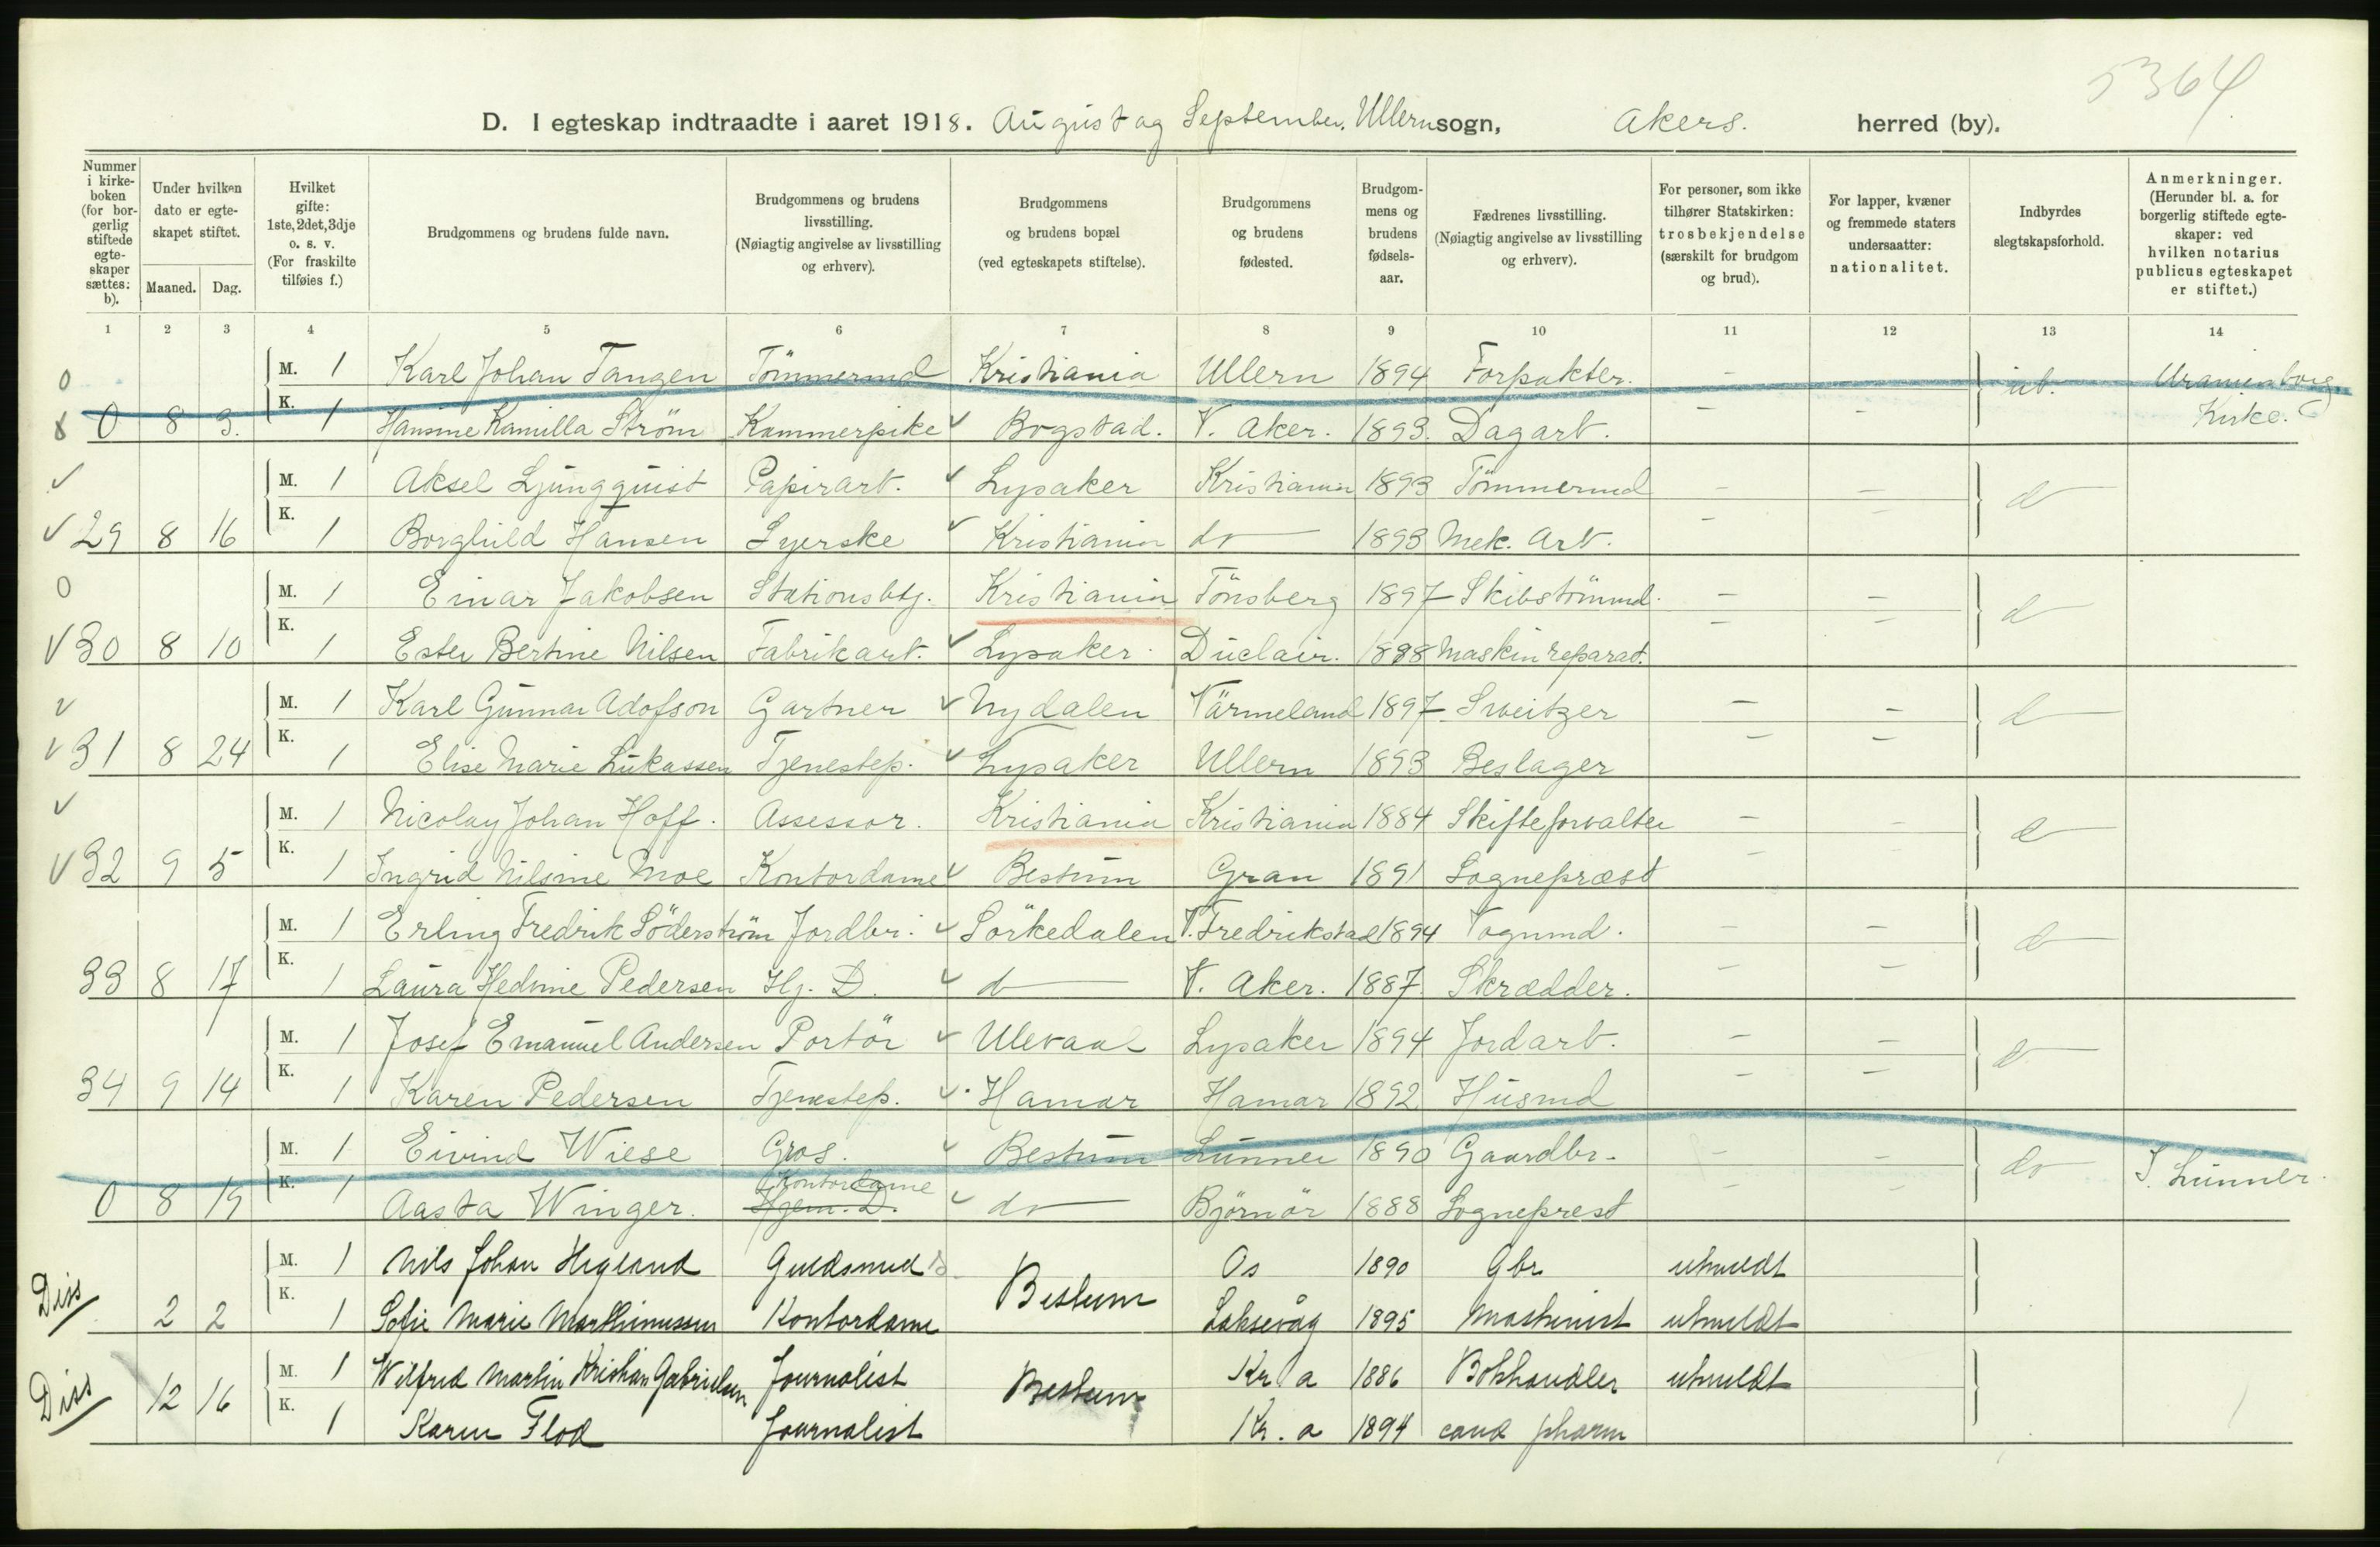 5364
D. I egteskap indtraadte i aaret 1918. August og September. Ullern sogn, Akers. herred (by).
Nummer i kirkeboken (for borgerlig stiftede egteskaper sættes: b).
Under hvilken dato er egteskapet stiftet.
Maaned. Dag.
Hvilket gifte: 1ste, 2det, 3dje o. s. v. (For fraskilte tilføies f.)
Brudgommens og brudens fulde navn.
Brudgommens og brudens livsstilling. (Nøiagtig angivelse av livsstilling og erhverv).
Brudgommens og brudens bopæl (ved egteskapets stiftelse).
Brudgommens og brudens fødested.
Brudgommens og brudens fødselsaar.
Fædrenes livsstilling. (Nøiagtig angivelse av livsstilling og erhverv).
For personer, som ikke tilhører Statskirken: trosbekjendelse (særskilt for brudgom og brud).
For lapper, kvæner og fremmede staters undersaatter: nationalitet.
Indbyrdes slegtskapsforhold.
Anmerkninger. (Herunder bl. a. for borgerlig stiftede egteskaper: ved hvilken notarius publicus egteskapet er stiftet.)
1 2 3 4 5 6 7 8 9 10 11 12 13 14
0 M. 1 Karl Johan Tangen Tömmermd Kristiania Ullern 1894 Forpakter. - ub. Uranienborg
0 8 3. K. 1 Hansine Kamilla Ström Kammerpike ✓ Bogstad. V. Aker. 1893. Dagarb. - - Kirke.
✓ M. 1 Aksel Ljungquist Papirarb. ✓ Lysaker Kristiania 1893 Tömmermd - - do
✓ 29 8 16 K. 1 Borghild Hansen Syerske ✓ Kristiania do 1893 Mek. Arb. - -
0 M. 1 Einar Jakobsen Stationsbtj. Kristiania Tönsberg 1897 Skibstömmd. - - do
✓ 30 8 10 K. 1 Ester Bertine Nilsen Fabrikarb. ✓ Lysaker Duclair. 1898 Maskinreparat. - -
✓ M. 1 Karl Gunnar Adofson Gartner ✓ Nydalen Värmeland 1897 Sveitzer - - do
✓ 31 8 24 K. 1 Elise Marie Lukassen Tjenestep. ✓ Lysaker Ullern 1893 Beslager - -
✓ M. 1 Nicolay Johan Hoff. Assessor. Kristiania Kristiania 1884 Skifteforvalter - - do
✓ 32 9 5 K. 1 Ingrid Nilsine Moe Kontordame ✓ Bestum Gran 1891 Sognepræst - -
M. 1 Erling Fredrik Söderström Jordbr. ✓ Sörkedalen V. Fredrikstad 1894 Vognmd. - - do
33 8 17 K. 1 Laura Hedvine Pedersen Hj. D. ✓ do V. Aker. 1887. Skrædder. - -
M. 1 Josef Emanuel Andersen Portör ✓ Ulevaal Lysaker 1894 Jordarb. - - do
34 9 14 K. 1 Karen Pedersen Tjenestep. ✓ Hamar Hamar 1892 Husmd - -
M. 1 Eivind Wiese Gros. ✓ Bestum Lunner 1890 Gaardbr. - - do I. Lunner.
0 8 19 K. 1 Aasta Winger. Hjem. D. Kontordame ✓ do Björnör 1888 Sogneprest - -
Diss M. 1 Nils Johan Hegland Guldsmed Bestum Os 1890 Gbr utmeldt
2 2 K. 1 Sofie Marie Marthinussen Kontordame Laksevåg 1895 Maskinist utmeldt
Diss 12 16 M. 1 Wilfred Martin Kristian Gabrielsen Journalist Bestum Kr a 1886 Bokhandler utmeldt
K. 1 Karen Flod Journalist Kr. a 1894 cand pharm